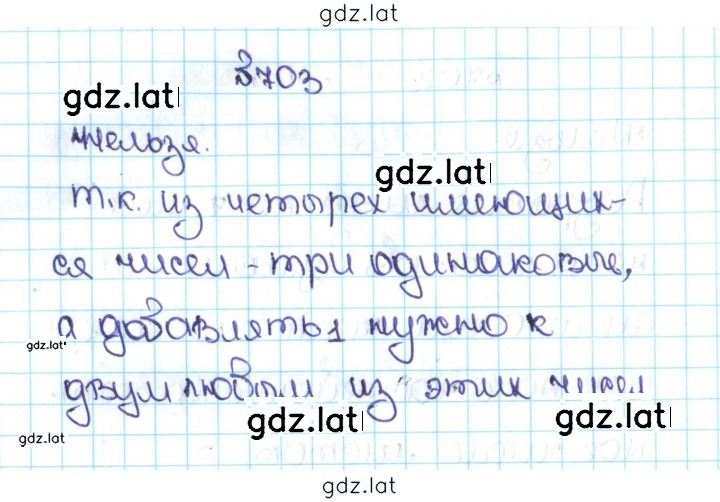 gdz.lat
№703
gdz.lat
Нельзя.
gdz.lat
т.к. из четырех имеющих-
ся чисел - три одинаковые,
а добавлять 1 нужно к
gdz.lat
двум любым из этих чисел
gdz.lat
gdz.lat
gdz.lat
gdz.lat